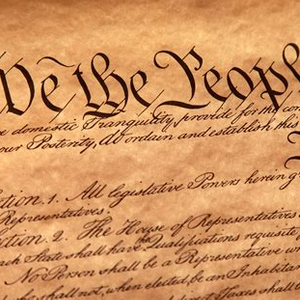 We the People
domestic Tranquility, provide for the com
our Posterity, do ordain and establish this
Section. 1. All legislative Powers herein g
Representatives.
ction. 2. The House of Representatives
each State shall have the Qualifications requisite
No Person shall be a Representative
who shall not, when elected, be an Inhabita
Taxes shall